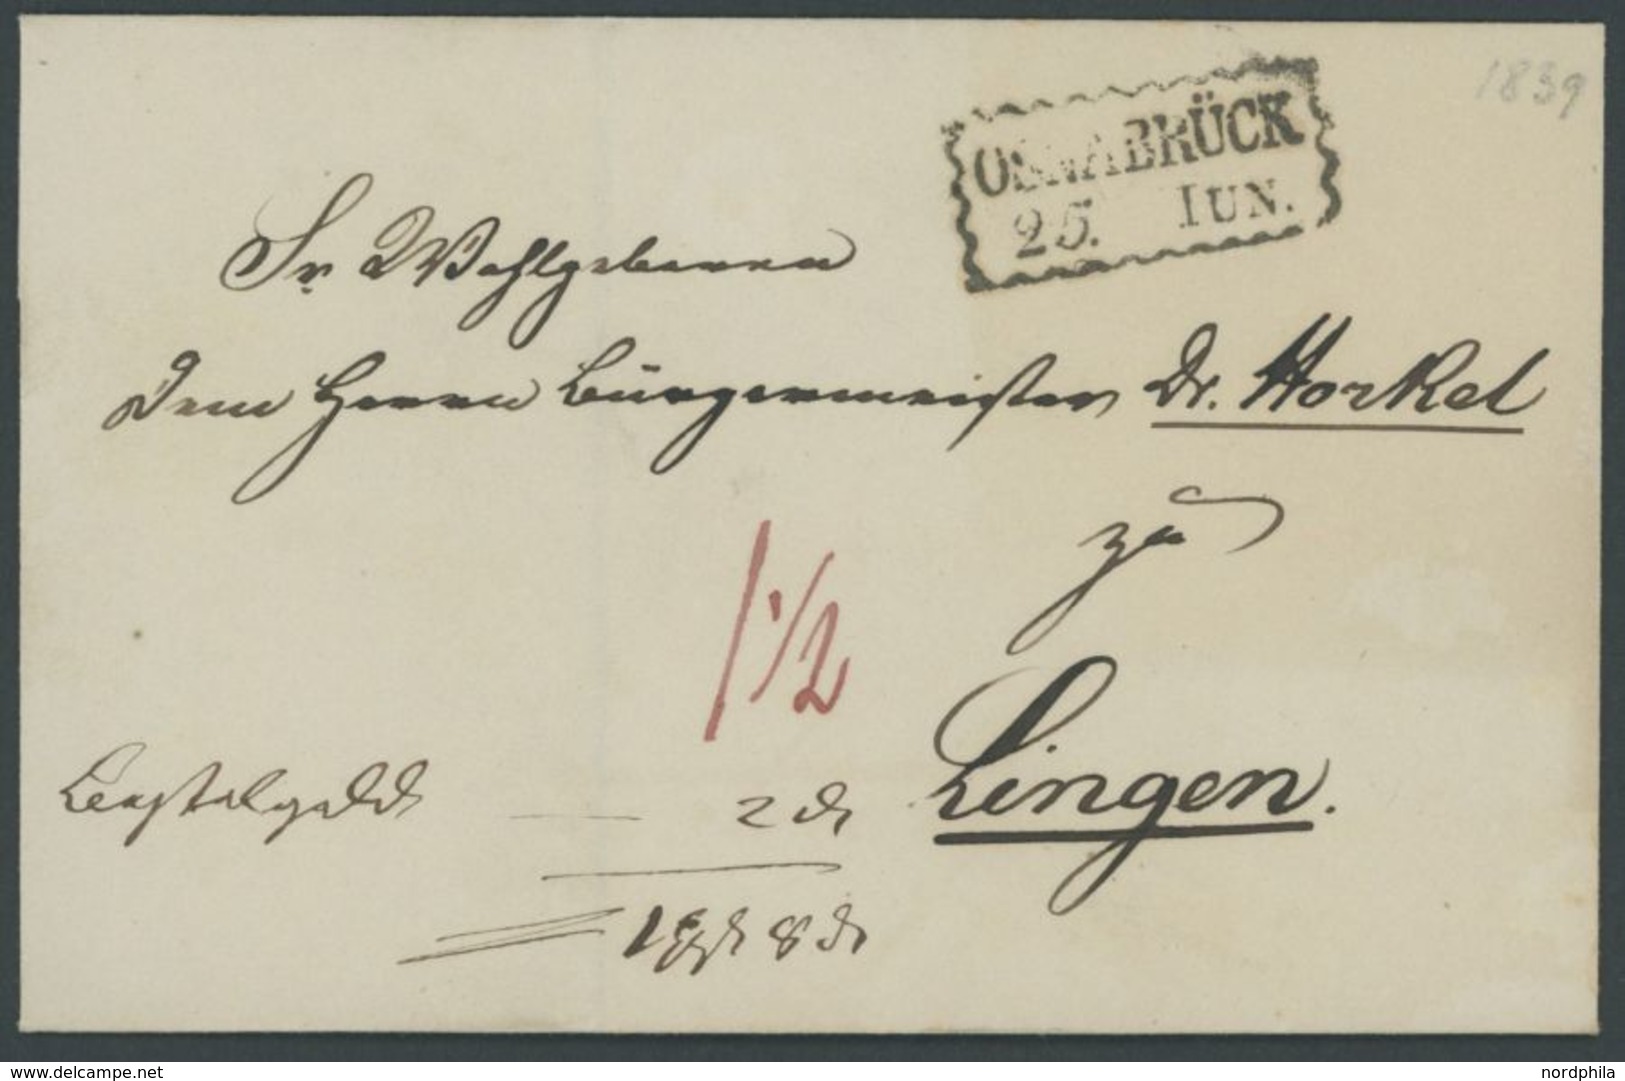 1839
OSNABRÜCK
25. IUN.
Sr. Wohlgeboren
Dem Herrn Bürgermeister Dr. Horkel
zu
Lingen.
1 1/2
Bestellgeld — 2 d
1 ggr 8 d
www.delcampe.net
nordphila